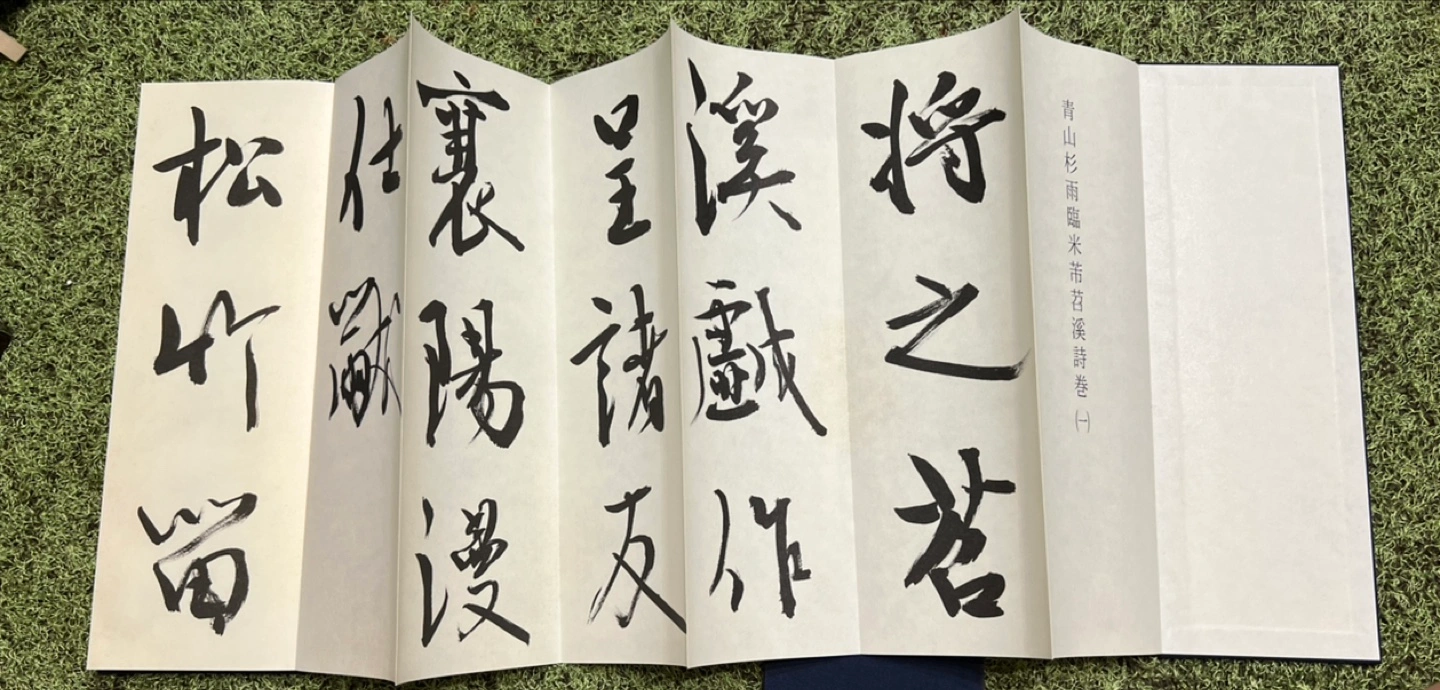 青山杉雨臨米芾苕溪詩巻(一)
将之苕
溪戯作
呈諸友
襄陽漫
仕黻
松竹留